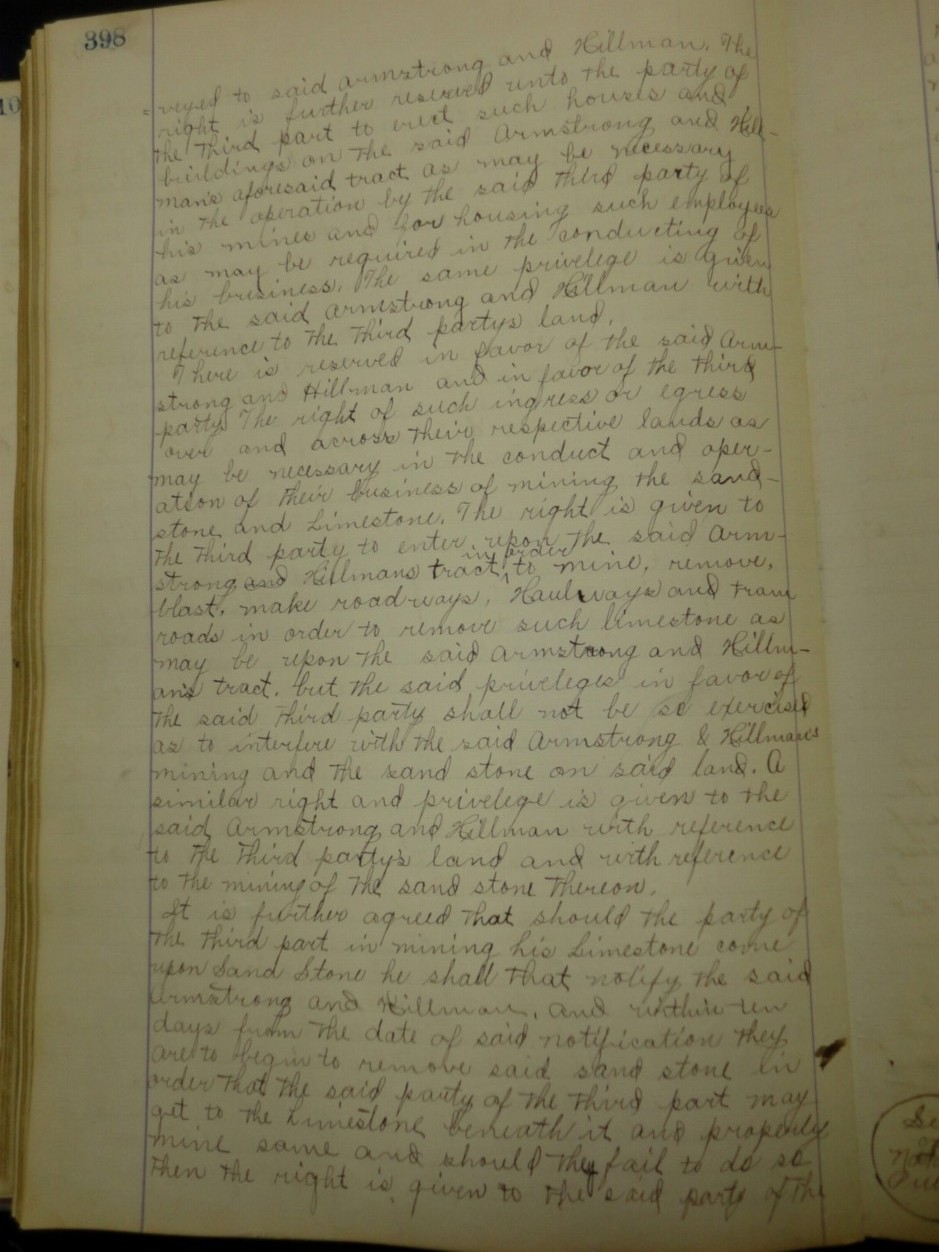 398
=veyed to said Armstrong and Hillman. The
right is further reserved unto the party of
the third part to erect such houses and
buildings on the said Armstrong and Hill-
man's aforesaid tract as may be necessary
in the operation by the said third party of
his mines and for housing such employees
as may be required in the conducting of
his business. The same privelege is given
to the said Armstrong and Hillman with
reference to the third partys land.
There is reserved in favor of the said Arm-
strong and Hillman and in favor of the third
party The right of such ingress or egress
over and across their respective lands as
may be necessary in the conduct and oper-
ation of their business of mining the sand-
stone and Limestone. The right is given to
the third party to enter upon the said Arm-
strong and Hillmans tract, in order to mine, remove,
blast, make roadways, Haulways and tram
roads in order to remove such limestone as
may be upon the said Armstrong and Hillm-
an's tract, but the said privileges in favor of
the said third party shall not be so exercised
as to interfere with the said Armstrong & Hillman's
mining and the sand stone on said land. A
similar right and privelege is given to the
said Armstrong and Hillman with reference
to the third party's land and with reference
to the mining of the sand stone thereon.
It is further agreed that should the party of
the third part in mining his Limestone come
upon Sand Stone he shall that notify the said
Armstrong and Hillman, and within ten
days from the date of said notification they
are to begin to remove said sand stone in
order that the said party of the third part may
get to the Limestone beneath it and properly
mine same and should they fail to do so
then the right is given to the said party of the